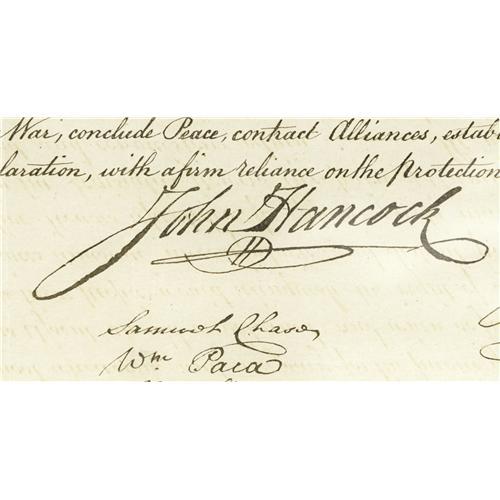 War, conclude Peace, contract Alliances, estab
laration, with a firm reliance on the Protection
John Hancock
Samuel Chase
Wm Paca